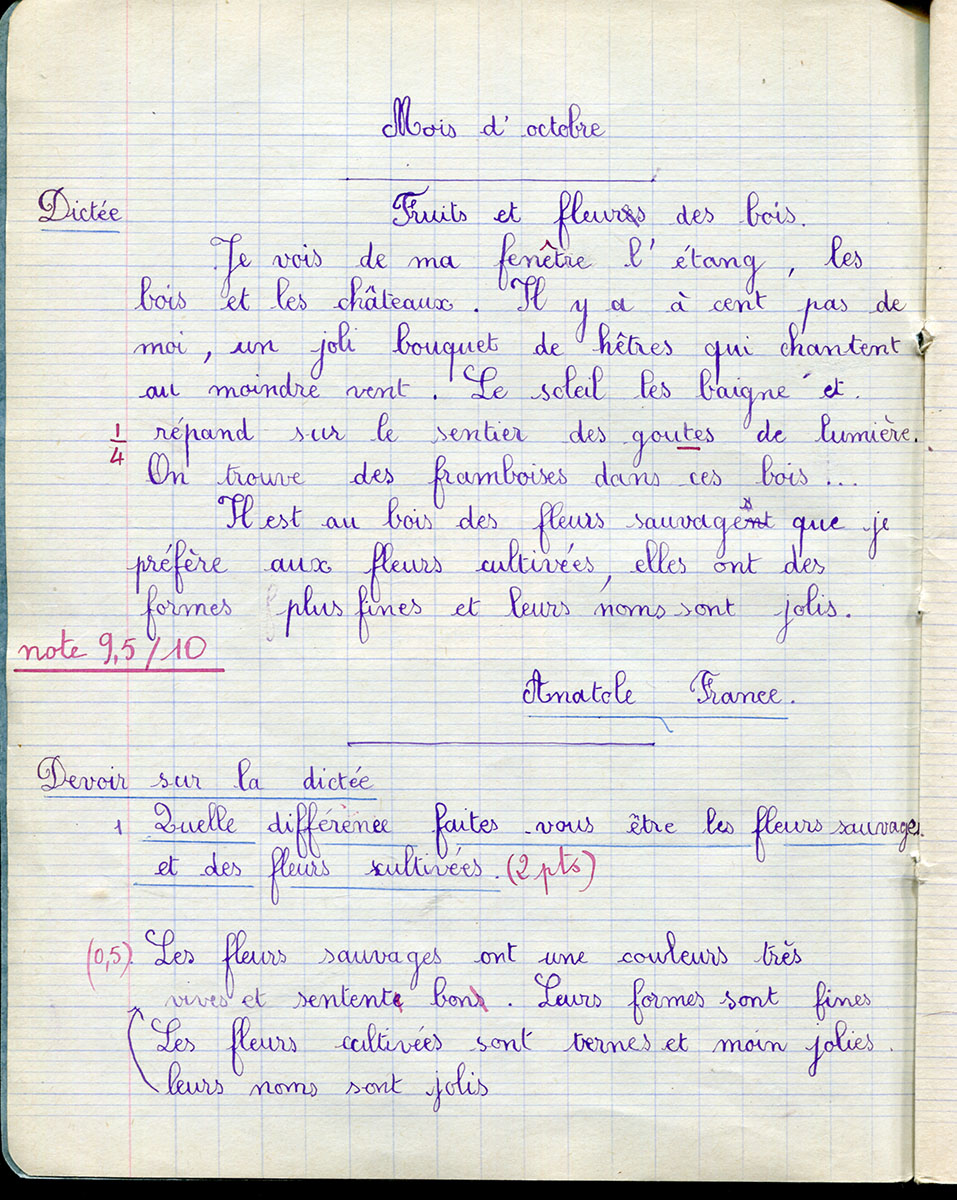 Mois d'octobre
Dictée Fruits et fleurs des bois.
Je vois de ma fenêtre l'étang, les
bois et les châteaux. Il y a à cent pas de
moi, un joli bouquet de hêtres qui chantent
au moindre vent. Le soleil les baigne et
1/4 répand sur le sentier des goutes de lumière.
On trouve des framboises dans ces bois...
Il est au bois des fleurs sauvages que je
préfère aux fleurs cultivées, elles ont des
formes plus fines et leurs noms sont jolis.
note 9,5/10
Anatole France.
Devoir sur la dictée
1 Quelle différence faites-vous être les fleurs sauvages.
et des fleurs cultivées. (2 pts)
(0,5) Les fleurs sauvages ont une couleurs très
vives et sentent bon. Leurs formes sont fines
Les fleurs cultivées sont ternes et moin jolies.
leurs noms sont jolis